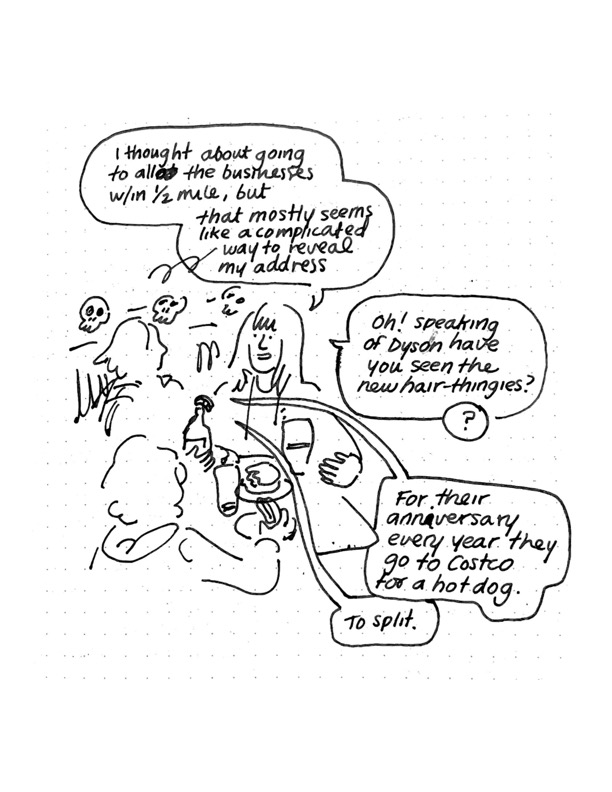 I thought about going
to all the businesses
w/in 1/2 mile, but
that mostly seems
like a complicated
way to reveal
my address
Oh! speaking
of Dyson have
you seen the
new hair-thingies?
?
For their
anniversary
every year they
go to Costco
for a hot dog.
To split.